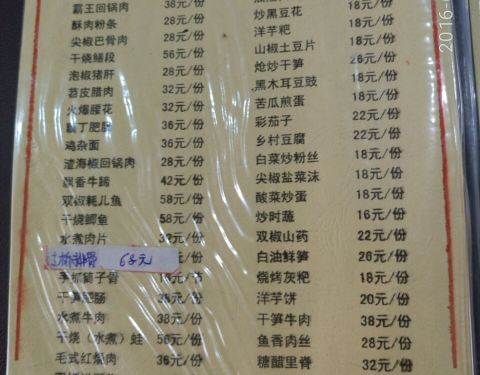 霸王回锅肉 38元/份
酥肉粉条 28元/份
尖椒巴骨肉 28元/份
干烧鳝段 56元/份
泡椒猪肝 28元/份
苕皮腊肉 32元/份
火爆腰花 32元/份
肥肠 36元/份
鸡杂面 36元/份
渣海椒回锅肉 28元/份
飘香牛蹄 42元/份
双椒耗儿鱼 58元/份
干烧鲫鱼 58元/份
水煮肉片 32元/份
过桥排骨 68元
手抓筒子骨
干笋肥肠 38元/份
水煮牛肉 38元/份
干烧（水煮）蛙 56元/份
毛式红烧肉 36元/份
18元/份
炒黑豆花 18元/份
洋芋粑 18元/份
山椒土豆片 18元/份
炝炒干笋 26元/份
黑木耳豆豉 18元/份
苦瓜煎蛋 18元/份
彩茄子 22元/份
乡村豆腐 22元/份
白菜炒粉丝 18元/份
尖椒盐菜沫 18元/份
酸菜炒蛋 18元/份
炒时蔬 16元/份
双椒山药 22元/份
白油鲜笋 26元/份
烧烤灰粑 18元/份
洋芋饼 20元/份
干笋牛肉 38元/份
鱼香肉丝 28元/份
糖醋里脊 32元/份
2016-